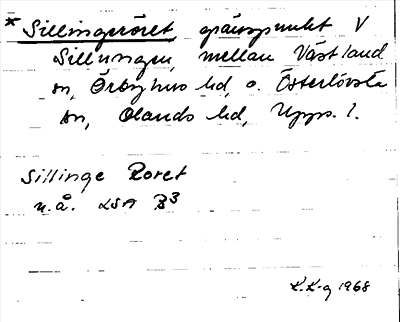 * Sillingeröret gränspunkt V
Sillungen, mellan Västland
sn, Örbyhus hd, o. Österlövsta
sn, Olands hd, Upps. l.
Sillinge Roret
u.å. LSA B3
K.K-g 1968